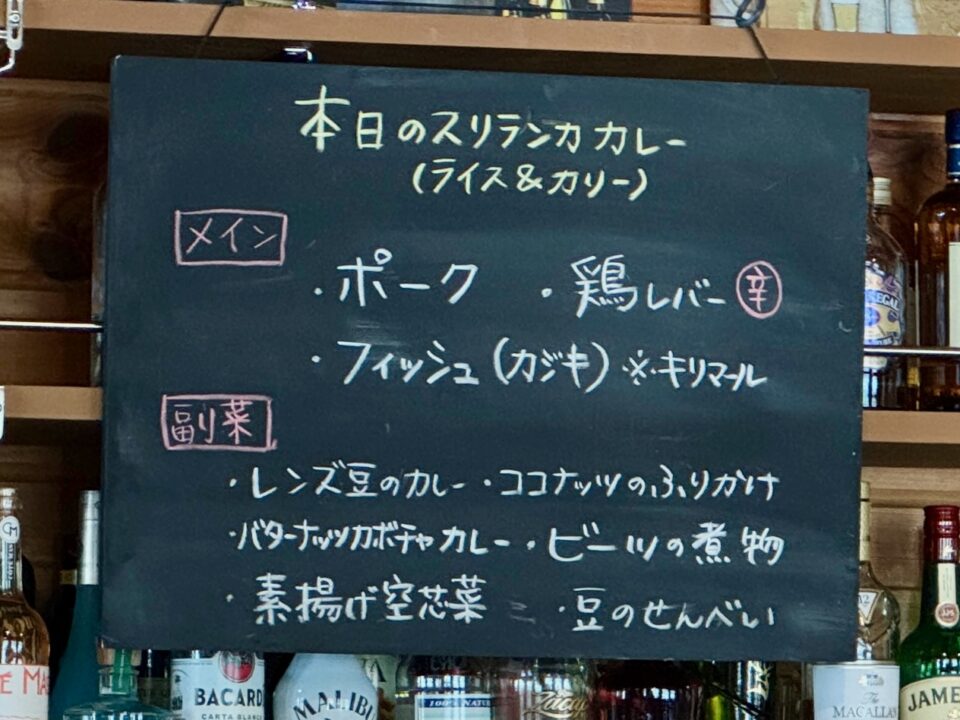 本日のスリランカカレー
(ライス&カリー)
メイン
・ポーク ・鶏レバー 辛
・フィッシュ(カジキ)※キリマール
副菜
・レンズ豆のカレー・ココナッツのふりかけ
・バターナッツカボチャカレー・ビーツの煮物
・素揚げ空芯菜 ・豆のせんべい
BACARDI
CARTA BLANCA
MALIBU
100% NATURAL
The
MACALLAN
JAMES